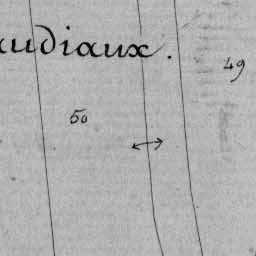 udiaux.
49
50